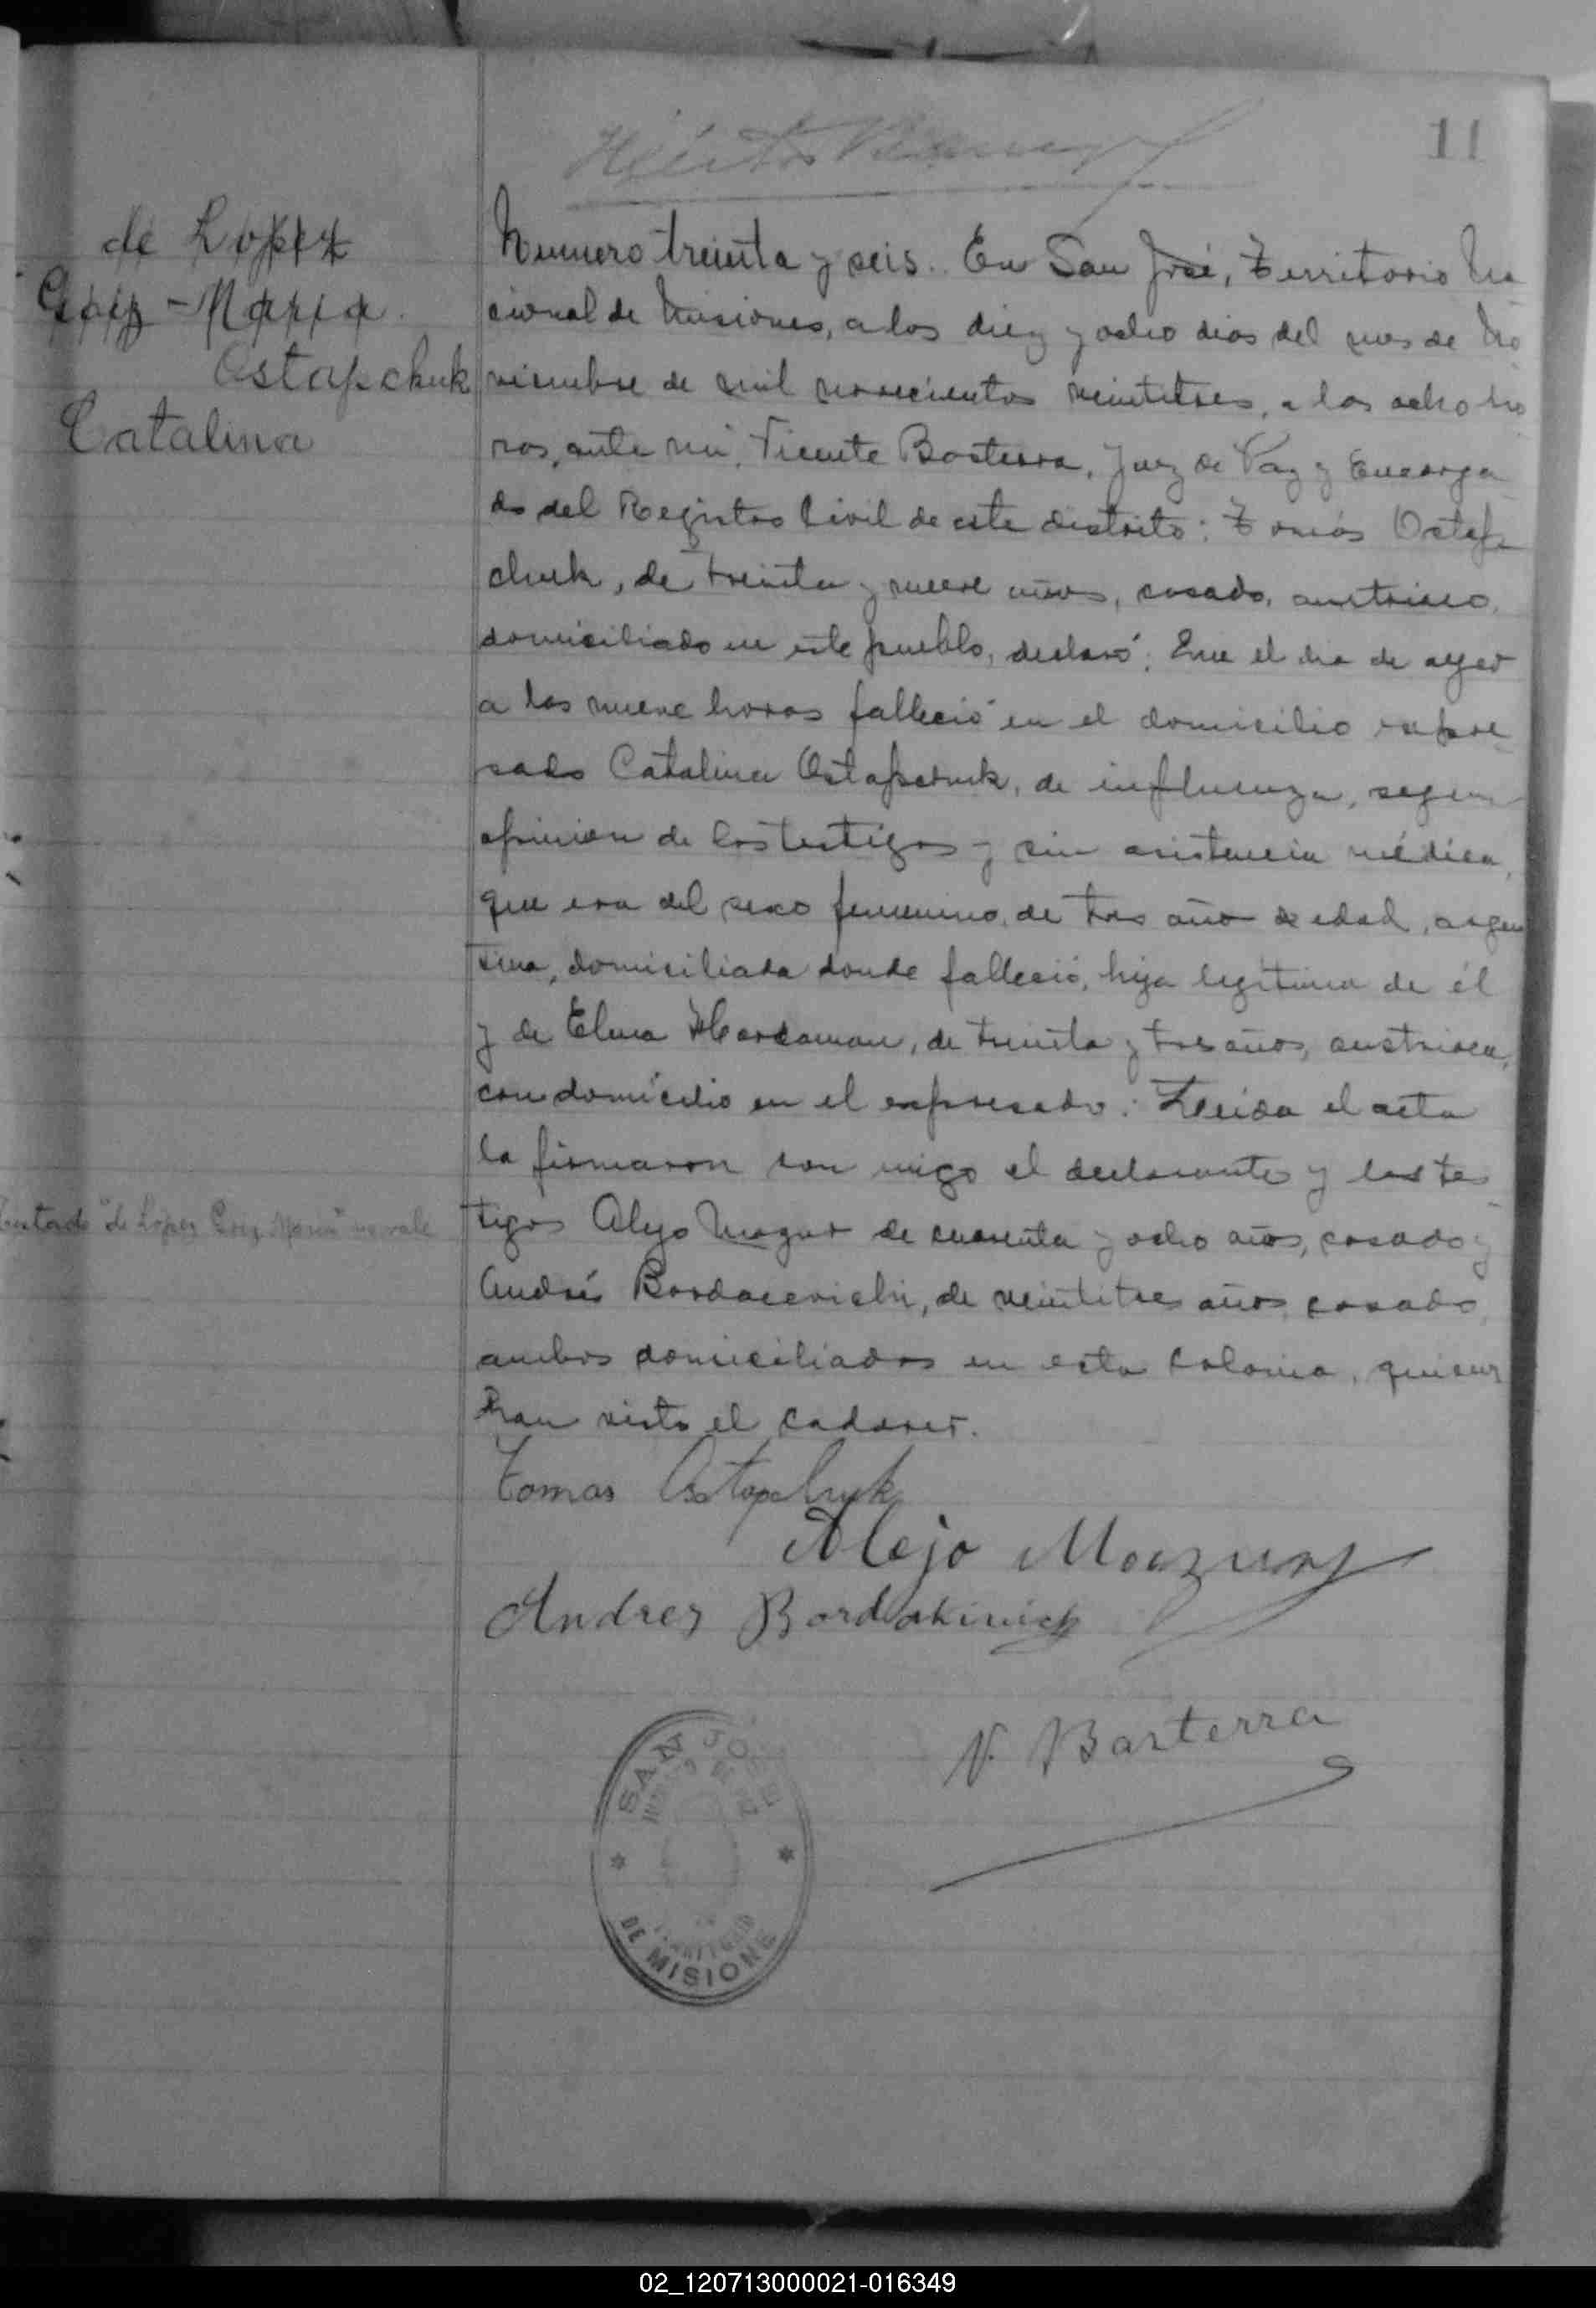 11
de Lopez
Goiz - Maria
Ostapchuk
Catalina
Numero treinta y seis. En San José, Territorio Na
cional de Misiones, a los diez y ocho dias del mes de No
viembre de mil novecientos veintitres, a las ocho ho
ras, ante mi, Vicente Basterra, Juez de Paz y Encarga
do del Registro Civil de este distrito: Tomás Ostap
chuk, de treinta y nueve años, casado, austriaco,
domiciliado en este pueblo, declaró: Que el dia de ayer
a las nueve horas falleció en el domicilio expre
sado Catalina Ostapchuk, de influenza, segun
opinion de los testigos y sin asistencia médica,
que era del sexo femenino, de tres año de edad, argen
tina, domiciliada donde falleció, hija legítima de él
y de Elena, de treinta y tres años, austriaca,
con domicilio en el expresado. Leida el acta
la firmaron con migo el declarante y los tes
tigos Alejo Mazur de cuarenta y ocho años, casado y
Andrés Bordacevichi, de veintitres años, casado,
ambos domiciliados en esta Colonia, quienes
han visto el cadaver.
Testado "de Lopez Goiz Maria" no vale
Tomas Ostapchuk
Alejo Mazur
Andres Bordakiwich
V. Basterra
SAN JOSE
JUZGADO DE PAZ
TERRITORIO
DE MISIONES
02_120713000021-016349